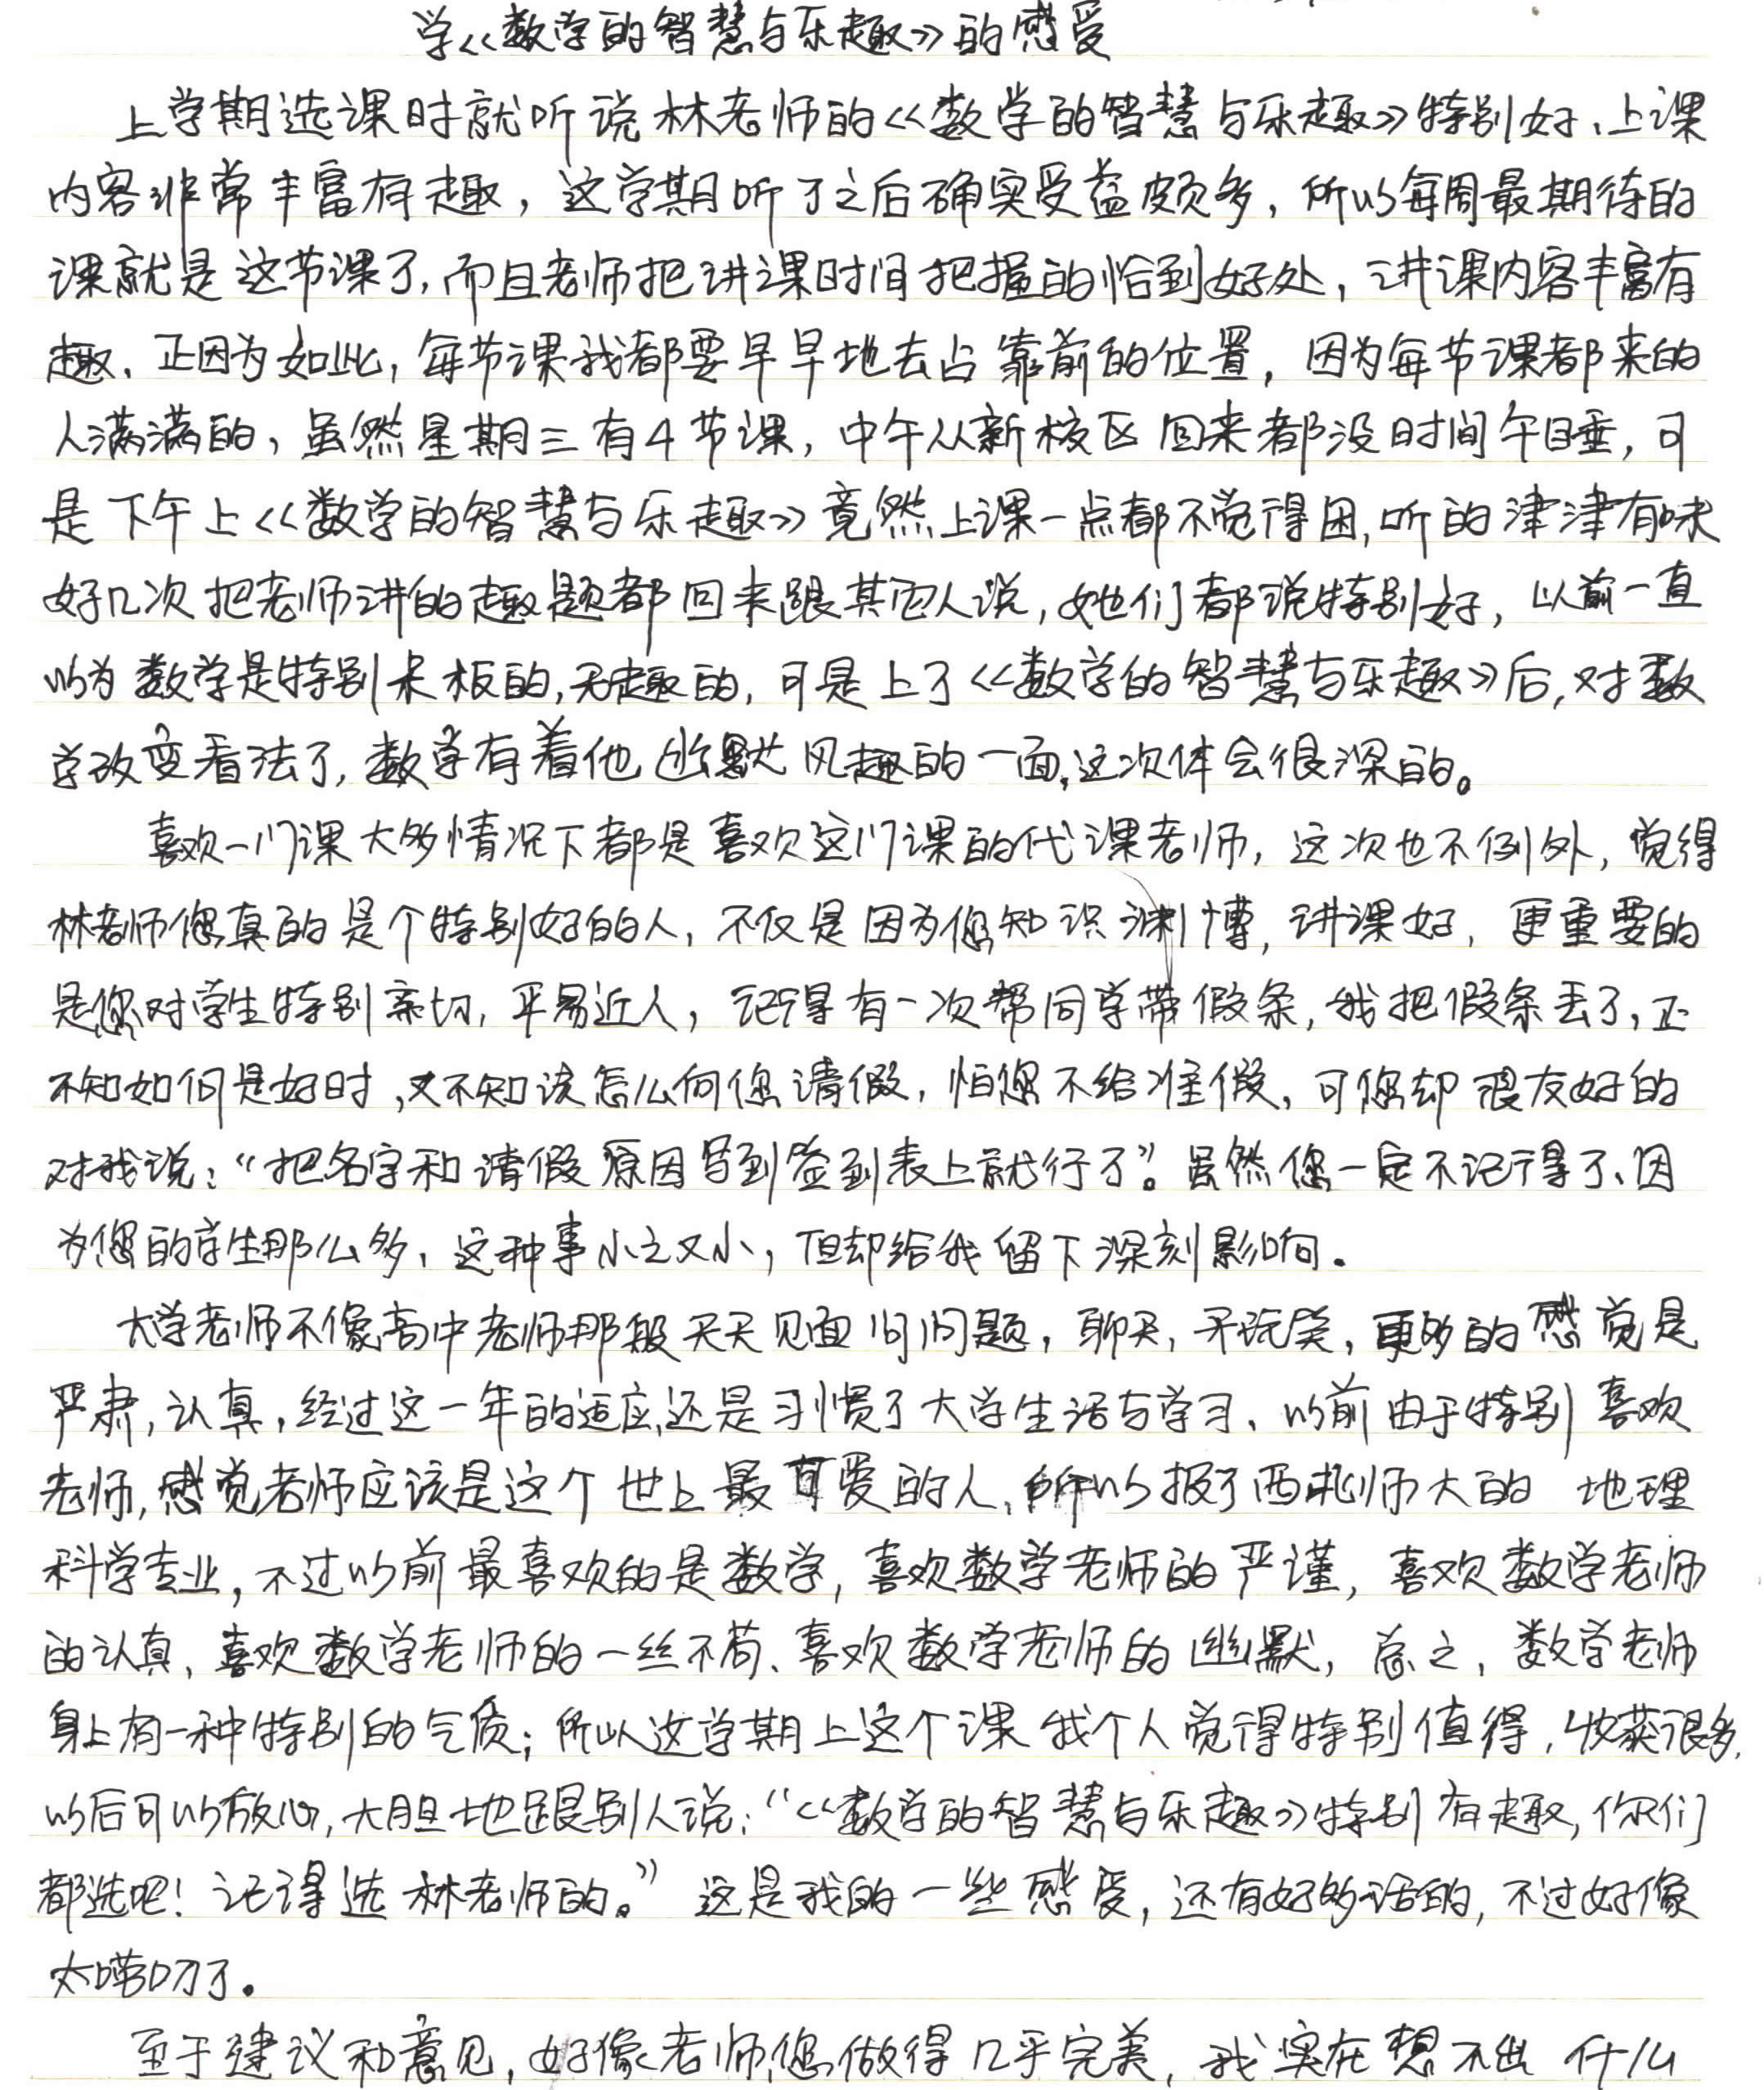 学《数学的智慧与乐趣》的感受
上学期选课时就听说林老师的《数学的智慧与乐趣》特别好、上课
内容非常丰富有趣，这学期听了之后确实受益颇多，所以每周最期待的
课就是这节课了,而且老师把讲课时间把握的恰到好处，讲课内容丰富有
趣、正因为如此，每节课我都要早早地去占靠前的位置，因为每节课都来的
人满满的，虽然星期三有4节课，中午从新校区回来都没时间午睡，可
是下午上《数学的智慧与乐趣》竟然上课一点都不觉得困,听的津津有味
好几次把老师讲的趣题都回来跟其它人说，她们都说特别好，以前一直
以为数学是特别呆板的,无趣的，可是上了《数学的智慧与乐趣》后,对数
学改变看法了，数学有着他幽默风趣的一面,这次体会很深的。
喜欢一门课大多情况下都是喜欢这门课的代课老师，这次也不例外，觉得
林老师您真的是个特别好的人，不仅是因为您知识渊博，讲课好，更重要的
是您对学生特别亲切，平易近人，记得有一次帮同学带假条，我把假条丢了，正
不知如何是好时,又不知该怎么向您请假，怕您不给准假，可您却很友好的
对我说：“把名字和请假原因写到签到表上就行了”。虽然您一定不记得了、因
为您的学生那么多，这种事小之又小，但却给我留下深刻影响。
大学老师不像高中老师那般天天见面问问题，聊天，开玩笑，更多的感觉是
严肃，认真，经过这一年的适应,还是习惯了大学生活与学习、以前由于特别喜欢
老师，感觉老师应该是这个世上最可爱的人,所以报了西北师大的 地理
科学专业，不过以前最喜欢的是数学，喜欢数学老师的严谨，喜欢数学老师
的认真，喜欢数学老师的一丝不苟、喜欢数学老师的幽默，总之，数学老师
身上有一种特别的气质；所以这学期上这个课我个人觉得特别值得，收获很多,
以后可以放心,大胆地跟别人说：“《数学的智慧与乐趣》特别有趣，你们
都选吧！记得选林老师的。”这是我的一些感受，还有好多话的，不过好像
太唠叨了。
至于建议和意见，好像老师您做得几乎完美，我实在想不出什么